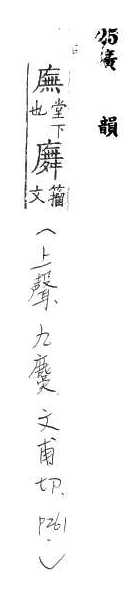 25廣韻
廡堂下也 籀文
(上聲、九麌、文甫切、P261.)